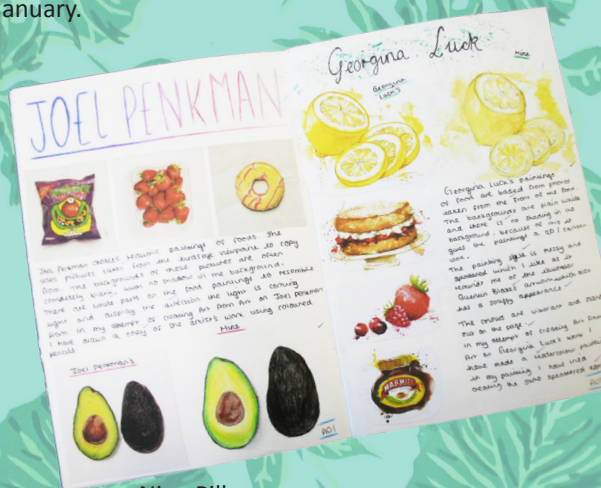 anuary.
JOEL PENKMAN
Joel Penkman creates realistic paintings of foods. She
uses pictures taken from the birdseye viewpoint to copy
from. The backgrounds of these pictures are often
completely blank, with no shadow in the background.
There are white parts on the food paintings to resemble
light and display the direction the light is coming
from. In my attempt of creating Art from Art on Joel Penkman
I have drawn a copy of the artist's work using coloured
pencils
Joel Penkman's
Mine
AO1
Georgina Luck
Georgina
Luck's
Mine
Georgina Luck's paintings
of food are based from photos
taken from the front of the food.
The backgrounds are plain white
and there is no shading in the
background, because of this it
gives the paintings a 2D/cartoon
look.
The painting style is messy and
splattered which I like as it
reminds me of the illustrator
Quentin Blake's artwork which also
has a scruffy appearance
The colours are vibrant and stand
out on the page
In my attempt of creating Art from
Art on Georgina Luck's work I
have made a watercolour painting
in my painting I have tried
creating the same splattered
MARMITE
AO1